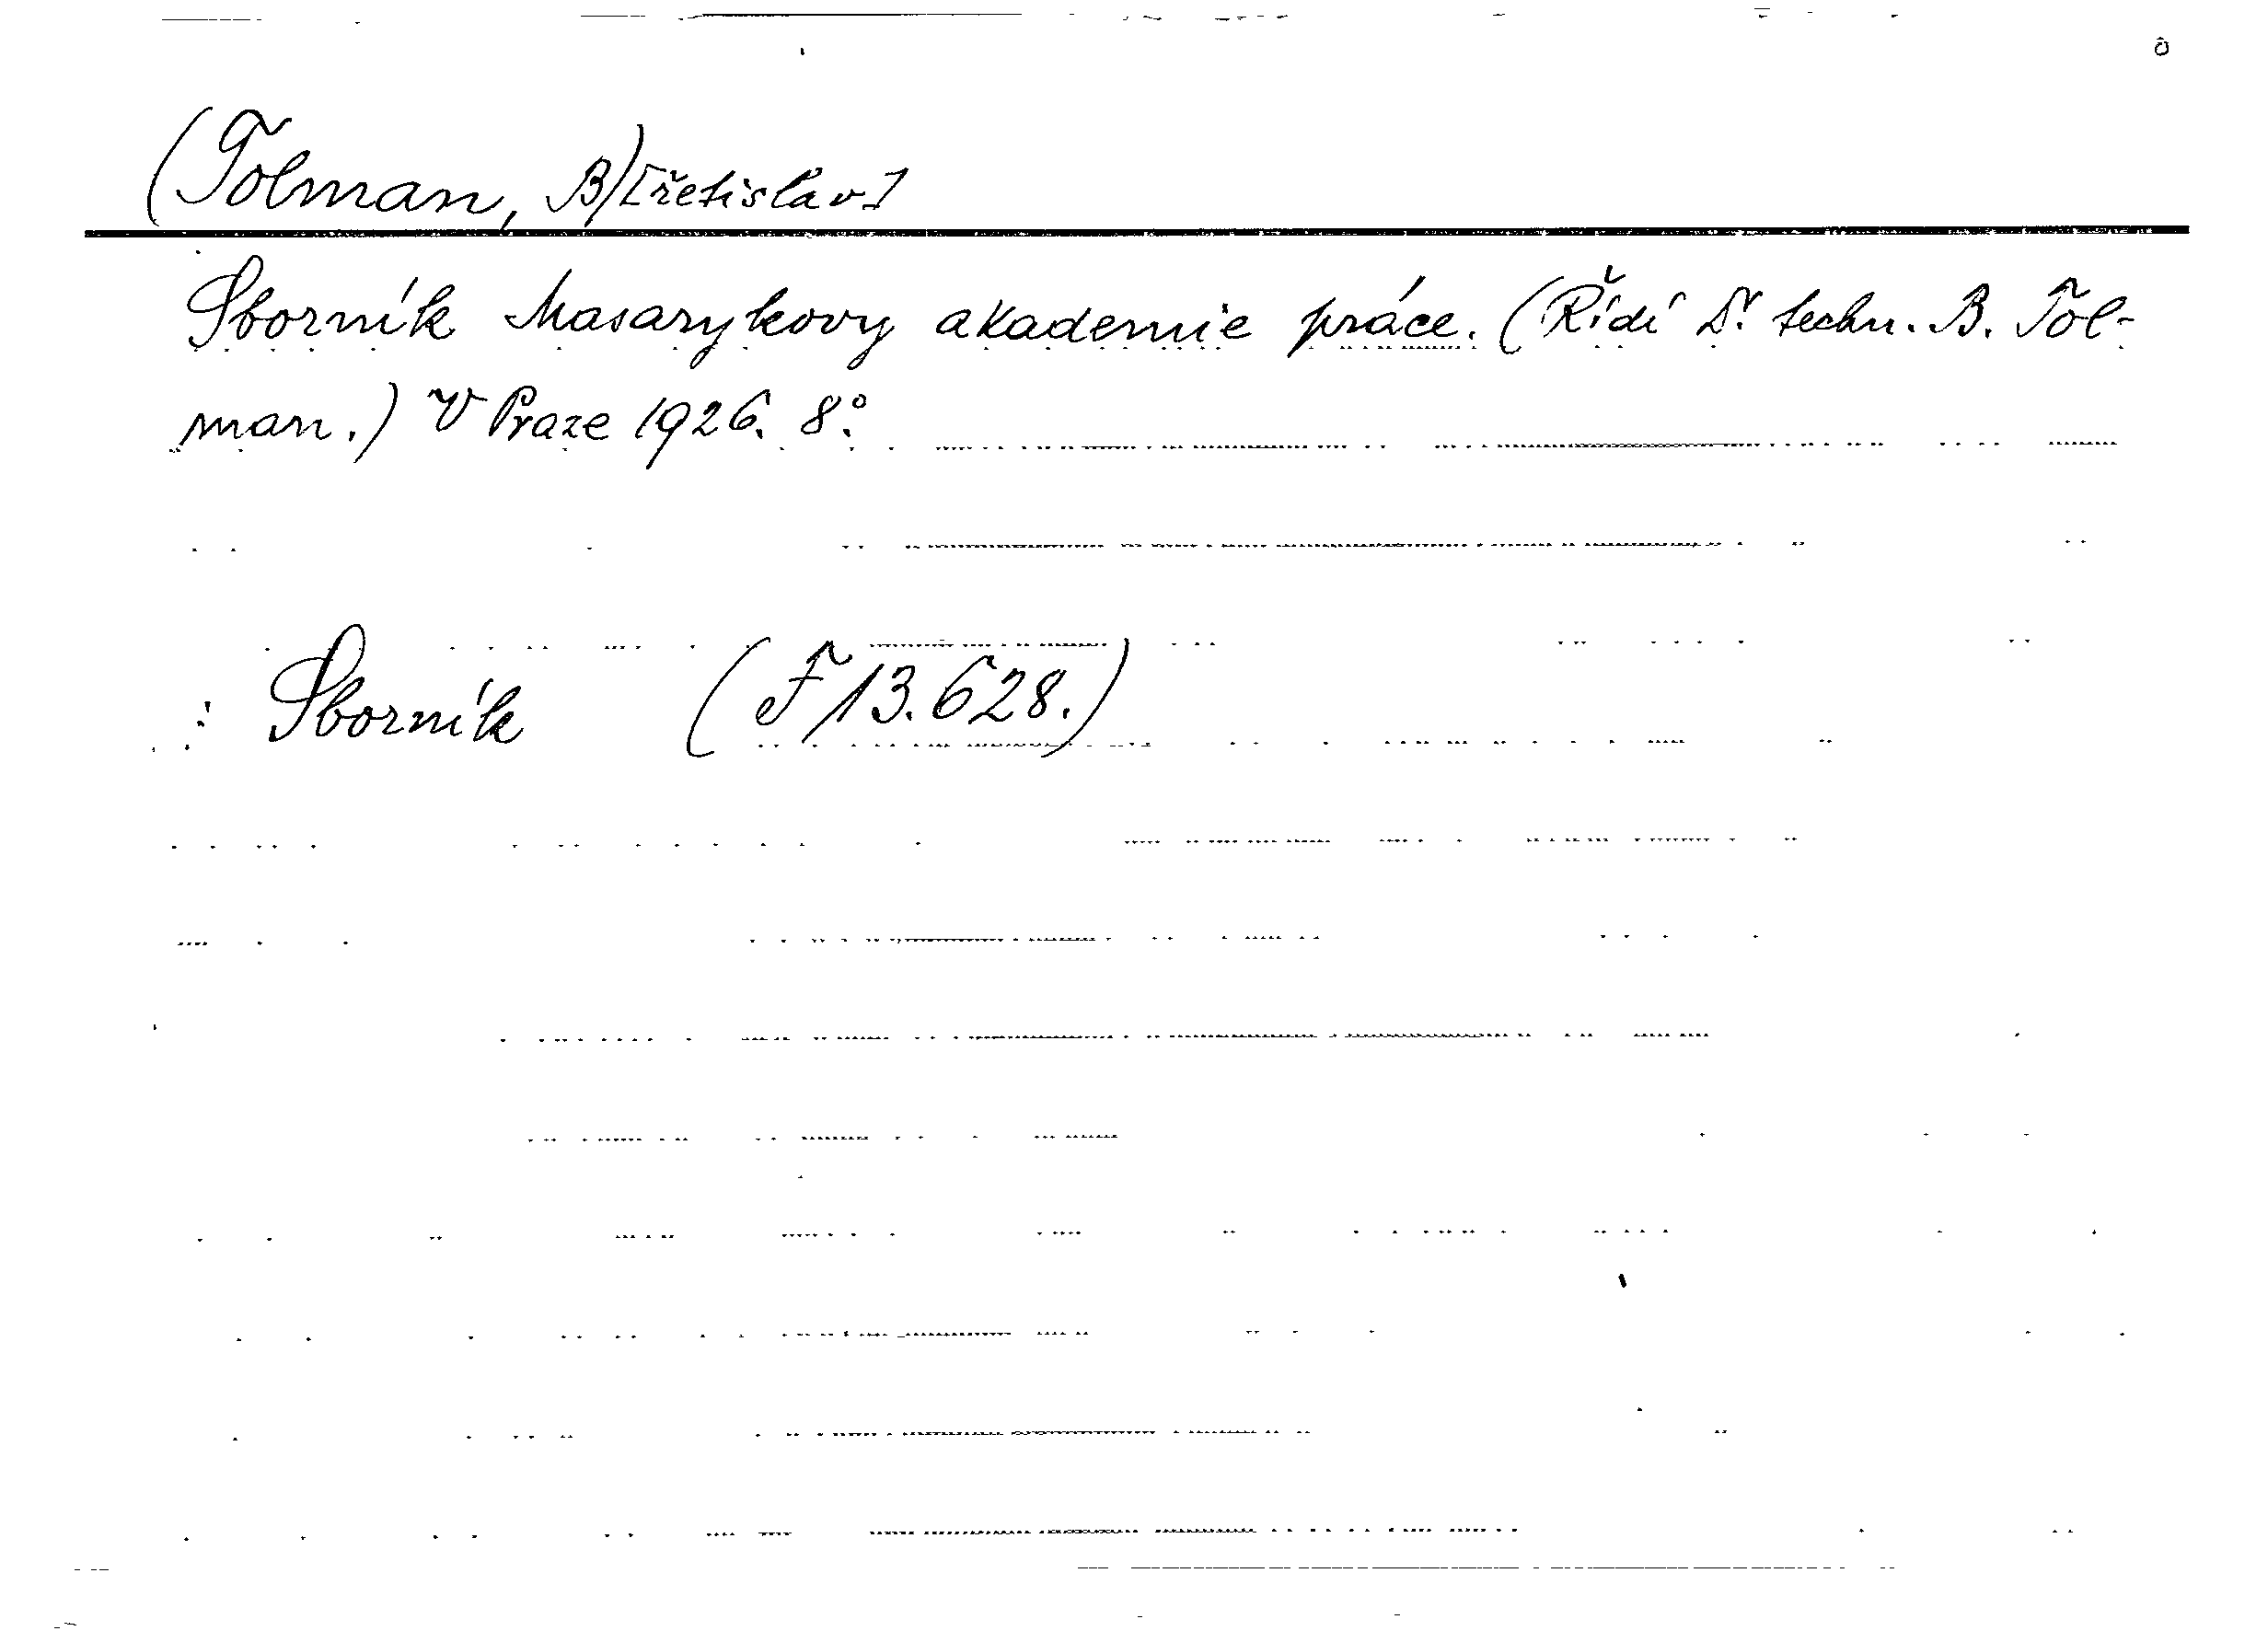 (Tolman, B)[řetislav]
Sborník Masarykovy akademie práce. (Řídí Dr. techn. B. Tol-
man.) V Praze 1926. 8°.
: Sborník (F 13.628.)